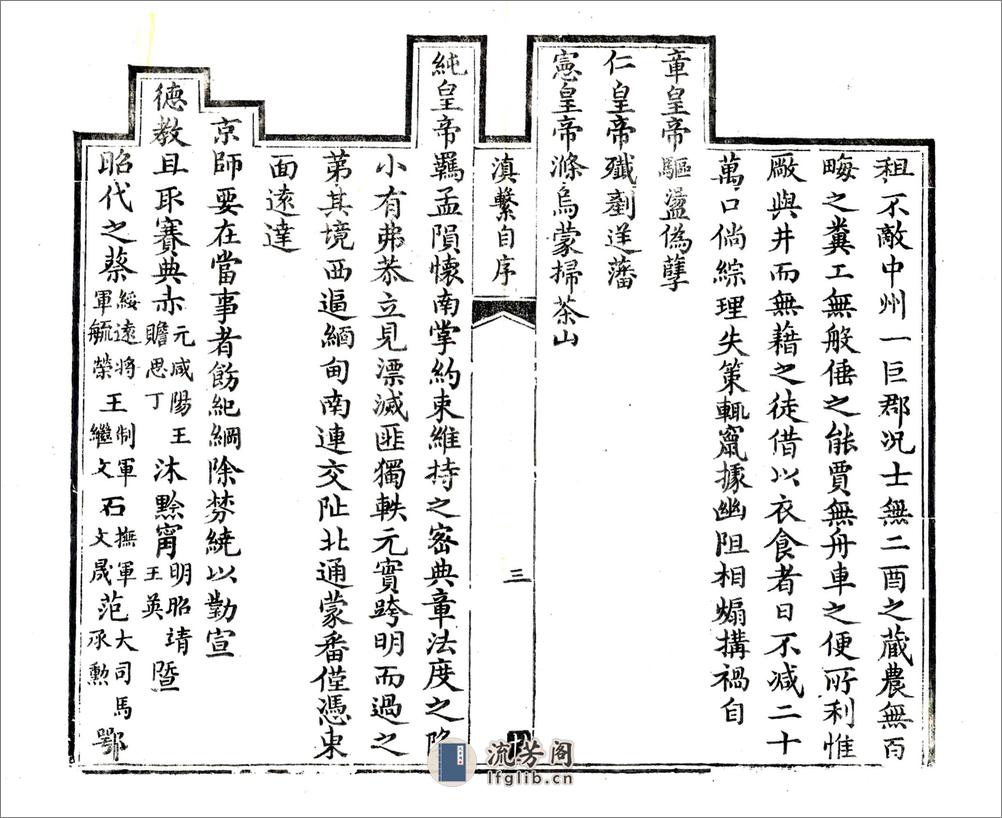 租不敵中州一巨郡況士無二酉之藏農無百
畮之糞工無般倕之能賈無舟車之便所利惟
厰與井而無藉之徒借以衣食者日不減二十
萬口倘綜理失策輒竄據幽阻相煽搆禍自
章皇帝驅盪偽孽
仁皇帝殲劉逆藩
憲皇帝滌烏蒙掃茶山
滇繫自序
三
純皇帝羈孟隕懷南掌約束維持之密典章法度之
小有弗恭立見漂滅匪獨軼元實跨明而過之
第其境西逼緬甸南連交阯北通蒙番僅憑東
面遠達
京師要在當事者飭紀綱除棼繞以勤宣
德教且夫賽典赤元咸陽王贍思丁沐黔甯明昭靖王英暨
昭代之蔡綏遠將軍毓榮王制軍繼文石撫軍文晟范大司馬承勲鄂
流芳阁
lfglib.cn